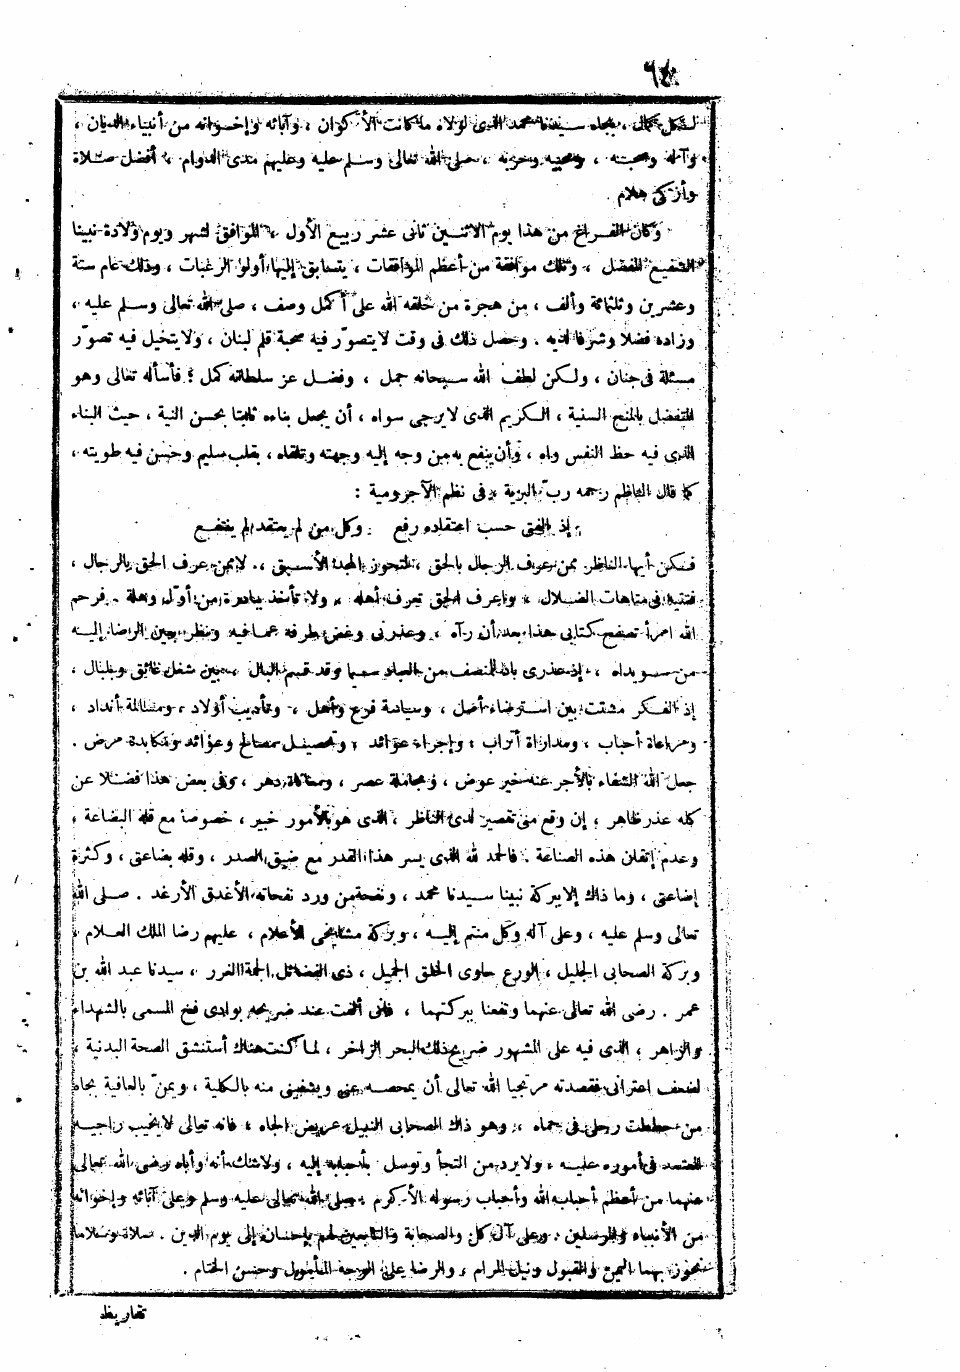 لكل كمال ، بجاه سيدنا محمد الذى لولاه ما كانت الأكوان ، وآبائه وإخوانه من أنبياء الديان ،
وآله وصحبته ، ومحبيه وحزبه ، صلى الله تعالى وسلم عليه وعليهم مدى الدوام ، أفضل صلاة
وأزكى سلام .
وكان الفراغ من هذا يوم الاثنين ثانى عشر ربيع الأول ، الموافق لشهر ويوم ولادة نبينا
الشفيع المفضل ، وتلك موافقة من أعظم الموافقات ، يتسابق إليها أولو الرغبات ، وذلك عام ستة
وعشرين وثلثمائة وألف ، من هجرة من خلقه الله على أكمل وصف ، صلى الله تعالى وسلم عليه ،
وزاده فضلا وشرفا لديه . وحصل ذلك فى وقت لا يتصوّر فيه صحبة قلم لبنان ، ولا يتخيل فيه تصوّر
مسئلة فى جنان ، ولكن لطف الله سبحانه جمل ، وفضل عز سلطانه كمل ؛ فأسأله تعالى وهو
المتفضل بالمنح السنية ، الكريم الذى لا يرجى سواه ، أن يجعل بناءه ثابتا بحسن النية ، حيث البناء
الذى فيه حظ النفس واه ، وأن ينفع به من وجه إليه وجهته وتلقاه ، بقلب سليم وحسن فيه طويته ،
كما قال الناظم رحمه ربّ البرية فى نظم الآجرومية :
إذ الفتى حسب اعتقاده رفع وكل من لم يعتقد لم ينتفع
فكن أيها الناظر ممن عرف الرجال بالحق ، لتحوز المجد الأسبق ، لا ممن عرف الحق بالرجال ،
فتتيه فى متاهات الضلال ، واعرف الحق تعرف أهله ، ولا تأخذ ببادرة من أوّل وهلة . فرحم
الله امرأ تصفح كتابى هذا بعد أن رآه ، وعذرنى وغض طرفه عما فيه ونظر بعين الرضا إليه
من سويداه ، إذ عذرى باد للمنصف من العباد سيما وقد قسم البال ، بين شغل عائق وبلبال ،
إذ الفكر مشتت بين استرضاء أصل ، وسياسة فرع وأهل ، وتأديب أولاد ، ومسالمة أنداد ،
ومراعاة أحباب ، ومداراة أتراب ، وإجراء عوائد ، وتحصيل مصالح وعوائد ومكابدة مرض .
جعل الله الشفاء بالأجر عنه خير عوض ، ومجاملة عصر ، ومماثلة دهر ، وفى بعض هذا فضلا عن
كله عذر ظاهر ، إن وقع منى تقصير لدى الناظر ، الذى هو بالأمور خبير ، خصوصا مع قلة البضاعة ،
وعدم إتقان هذه الصناعة . فالحمد لله الذى يسر هذا القدر مع ضيق الصدر ، وقلة بضاعتى ، وكثرة
إضاعتى ، وما ذاك إلا ببركة نبينا سيدنا محمد ، ونفحة من ورد نفحاته الأغدق الأرغد . صلى الله
تعالى وسلم عليه ، وعلى آله وكل منتم إليه ، وبركة مشايخى الأعلام ، عليهم رضا الملك العلام ،
وبركة الصحابى الجليل ، الورع حاوى الخلق الجميل ، ذى الفضائل الجمة الغرر ، سيدنا عبد الله بن
عمر . رضى الله تعالى عنهما ونفعنا ببركتهما ، فانى ألفت عند ضريحه بوادى فخ المسمى بالشهداء
والزاهر ، الذى فيه على المشهور ضريح ذلك البحر الزاخر ، لما كنت هناك أستنشق الصحة البدنية ،
لضعف اعترانى فقصدته مرتجيا الله تعالى أن يمحصه عنى ويشفينى منه بالكلية ، ويمنّ بالعافية بجاه
من حططت رحلى فى حماه ، وهو ذاك الصحابى النبيل عريض الجاه ، فانه تعالى لا يخيب راجيه
المعتمد فى أموره عليه ، ولا يرد من التجأ وتوسل بأحبابه إليه ، ولاشك أنه وأباه رضى الله تعالى
عنهما من أعظم أحباب الله وأحباب رسوله الأكرم ، صلى الله تعالى عليه وسلم وعلى آبائه وإخوانه
من الأنبياء والمرسلين ، وعلى آل كل والصحابة والتابعين لهم بإحسان إلى يوم الدين . صلاة وسلاما
نحوز بهما اليمن والقبول ونيل المرام ، والرضا على الوجه المأمول وحسن الختام .
تقاريظ